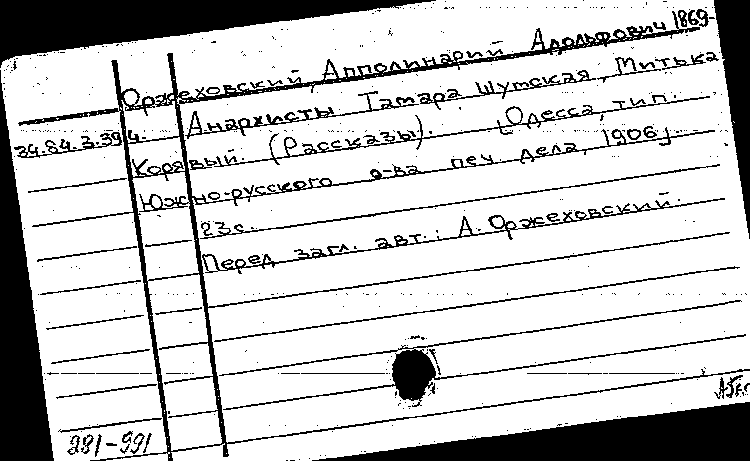 Оржеховский, Апполинарий Адольфович 1869-
34.84.3.394. Анархисты Тамара Шутская, Митька
Корявый. (Рассказы). [Одесса, тип.
Южно-русского о-ва печ дела, 1906].
23с.
Перед загл. авт.: А. Оржеховский.
281-991